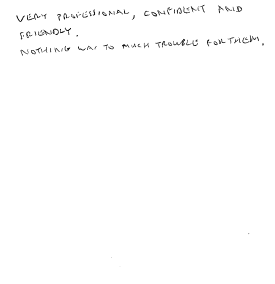 VERY PROFESSIONAL, CONFIDENT AND
FRIENDLY.
NOTHING WAS TO MUCH TROUBLE FOR THEM.